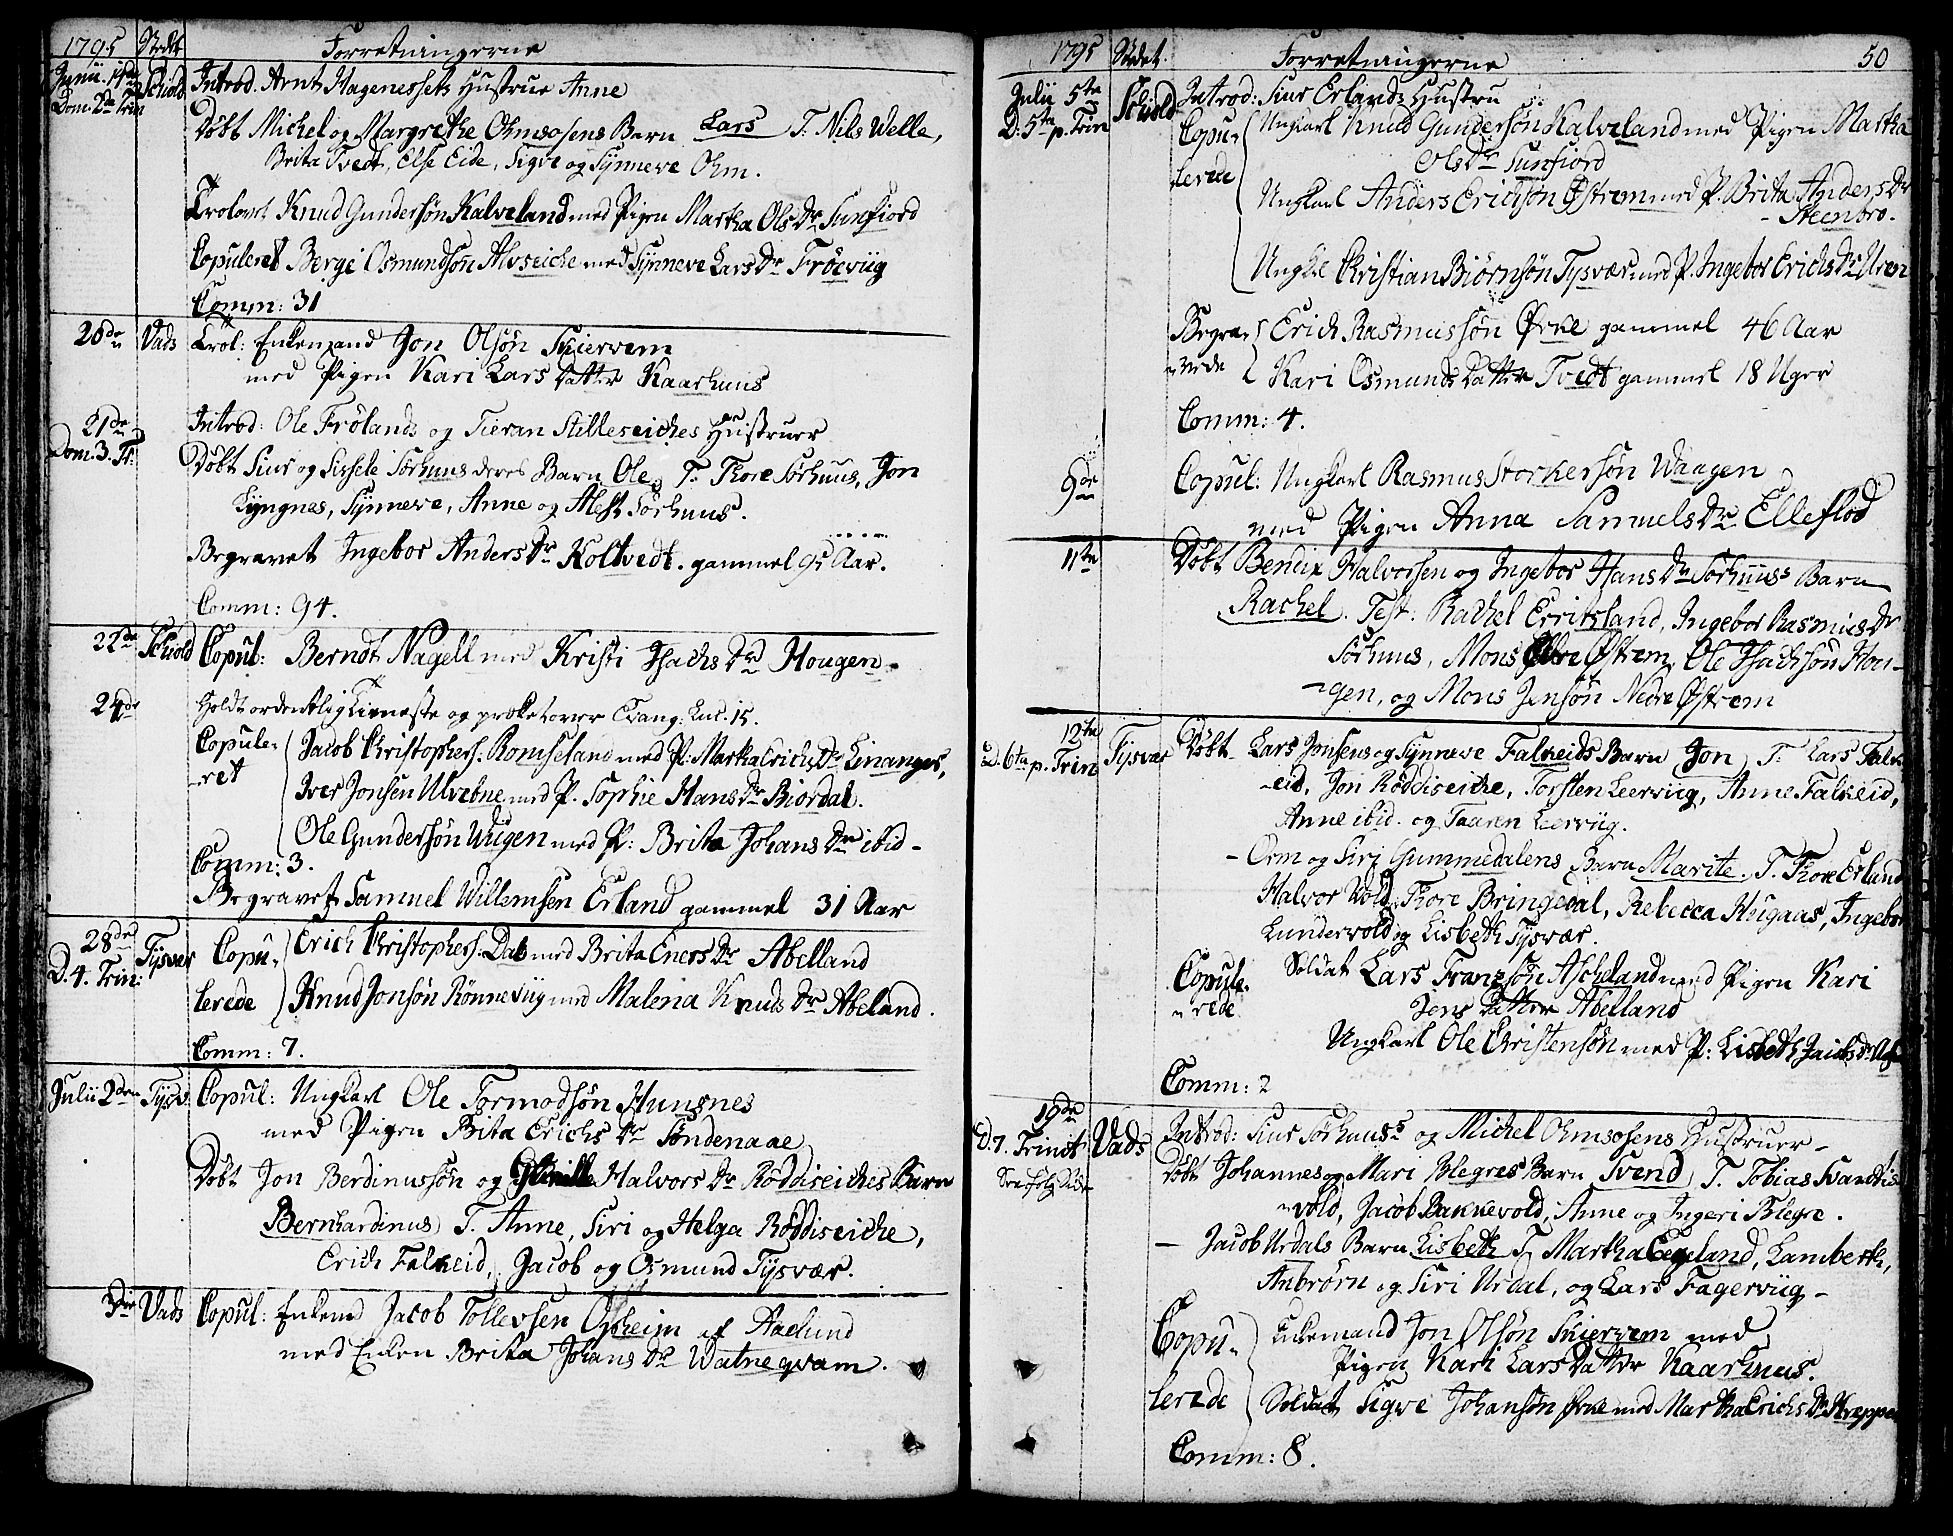 1795 Stedet Forretningerne
Junii 14de Schiold Introd. Arnt Hagenessets Hustrue Anne
Dom. 2da Trin
Døbt Michel og Margrethe Ohmsosens Barn Lars T. Nils Welle,
Brita Tvedt, Else Eide, Sigve og Synneve Ohm.
Trolovt Knud Gundersøn Kalveland med Pigen Martha Ols Dr Sunfiord
Copuleret Berge Osmundsøn Alvseiche med Synneve Lars Dr Frøeviig
Comm: 31
20de Vads Trol: Enkemand Jon Olsøn Skiervem
med Pigen Kari Lars Datter Kaarhuus
21de Introd: Ole Frølands og Tieran Stilleseiches Hustruer
Dom. 3. Tr. Døbt Siur og Sissele Sørhuus deres Barn Ole, T: Thore Sørhuus, Jon
Lyngnes, Synneve, Anne og Alest Sørhuus.
Begravet Ingebor Anders Dr Koltvedt. gammel 95 Aar.
Comm: 94.
22de Schiold Copul: Berndt Nagell med Kristi Isachs Dr Hougen.
24de Holdt ordentlig Tieneste og præket over Evang: Luc. 15.
Copule- Jacob Christophers: Romseland med P: Martha Erichs Dr Linanges,
-ret Iver Jonsen Ulvebne med P. Sophie Hans Dr Biordal.
Ole Gundersøn Wiigen med P: Brita Johans Dr ibid-
Comm: 3.
Begravet Samuel Willemsen Erland gammel 31 Aar
28de Tysvær Copu- Erich Christophers: Dal med Brita Eners Dr Abelland
D. 4. Trin: lerede Knud Jonsøn Rønneviig med Malena Knuds Dr Abeland.
Comm: 7.
Julii 2den Tysv. Copul: Ungkarl Ole Tormodsøn Hunsnes
med Pigen Brita Erichs Dr Søndenaae
Døbt Jon Berdinussøn og Halvors Dr Røddiseiches Barn
Bernhardinus T. Anne, Siri og Helga Røddiseiche,
Erich Falkeid, Jacob og Osmund Tysvær.
3die Vads Copul: Enkemd Jacob Tollevsen Opheim af Aaelund
med Enken Brita Johans Dr Watneqvam.
1795 Stedet. Forretningerne 50
Julii 5te Schiold Introd: Siur Erlands Hustru
D: 5te p. Trin Copu- Ungkarl Knud Gundersøn Kalveland med Pigen Martha
lerede Ols Dr Sunfiord
Ungkarl Anders Erichsøn Østrem med P. Brita Anders Dr
- Steenbro.
Ungkl Christian Biørnsøn Tysvær med P. Ingebor Erichs Dr Uren
Begra- Erich Rasmussøn Ørke gammel 46 Aar
-vede Kari Osmunds Datter Tvedt gammel 18 Uger
Comm: 4.
9de Copul: Ungkarl Rasmus Storkersøn Waagen
med Pigen Anna Samuels Dr Elleflod
11te Døbt Bendix Halvorsen og Ingebor Hans Dr Sørhuus's Barn
Rachel. Test: Rachel Erritsland, Ingebor Rasmus Dr
Sørhuus, Mons Østrem, Ole Isachsøn Hou-
-gen, og Mons Jensøn Nedre Østrem
12te Tysvær Døbt Lars Jonsens og Synneve Falkeids Barn Jon T. Lars Falk-
D. 6te p. Trin -eid, Jon Røddiseiche, Torsten Leerviig, Anne Falkeid,
Anne ibid. og Taaren Leerviig.
- Orm og Siri Gummedalens Barn Marite. T. Thore Erland
Halvor Vold, Thore Bringedal, Rebecca Heugaas, Ingebor
Lundervold og Lisbeth Tysvær.
Copule- Soldat Lars Franzsøn Ascheland med Pigen Kari
-rede Jens Datter Abelland
Ungkarl Ole Christensøn med P: Lisbeth
Comm: 2
19de Vads Introd: Siur Sørhuus's og Michel Ohmsosens Hustruer-
D. 7. Trinit: Døbt Johannes og Mari Blegres Barn Svend T. Tobias
-vold, Jacob Bakkevold, Anne og Ingeri Blegre.
- Jacob Urdals Barn Lisbeth T. Martha Egeland, Lamberth,
Anbrørn og Siri Urdal, og Lars Fagerviig-
Copu- Enkemand Jon Olsøn Skiervem med
Pigen Kari Lars Datter Kaarhuus.
lerede Soldat Sigve Johansøn Ørke med Martha Erichs Dr
Comm: 8.